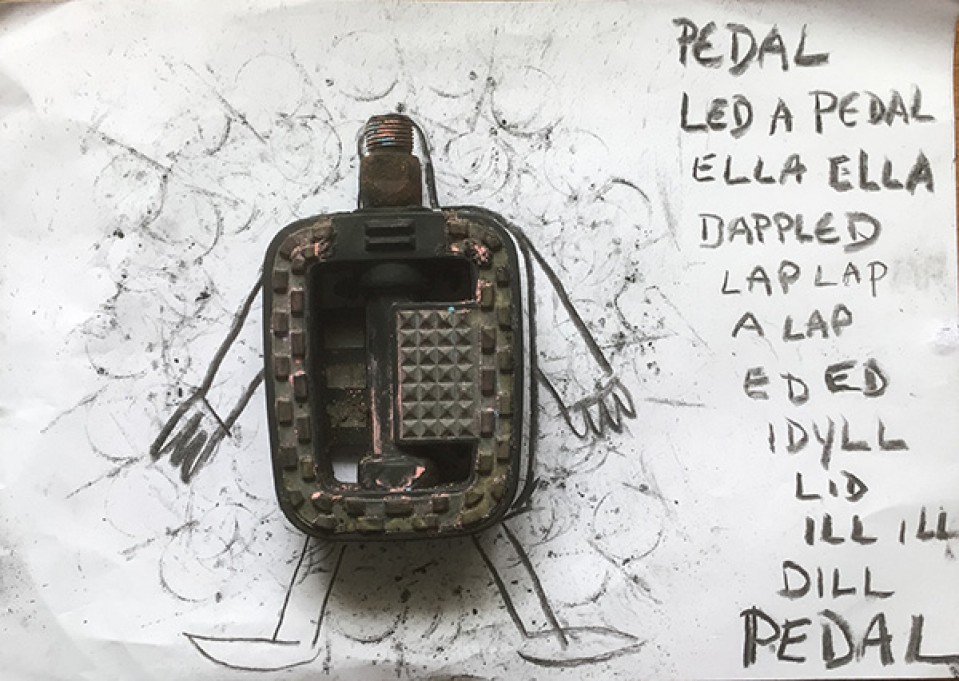 PEDAL
LED A PEDAL
ELLA ELLA
DAPPLED
LAP LAP
A LAP
ED ED
IDYLL
LID
ILL ILL
DILL
PEDAL